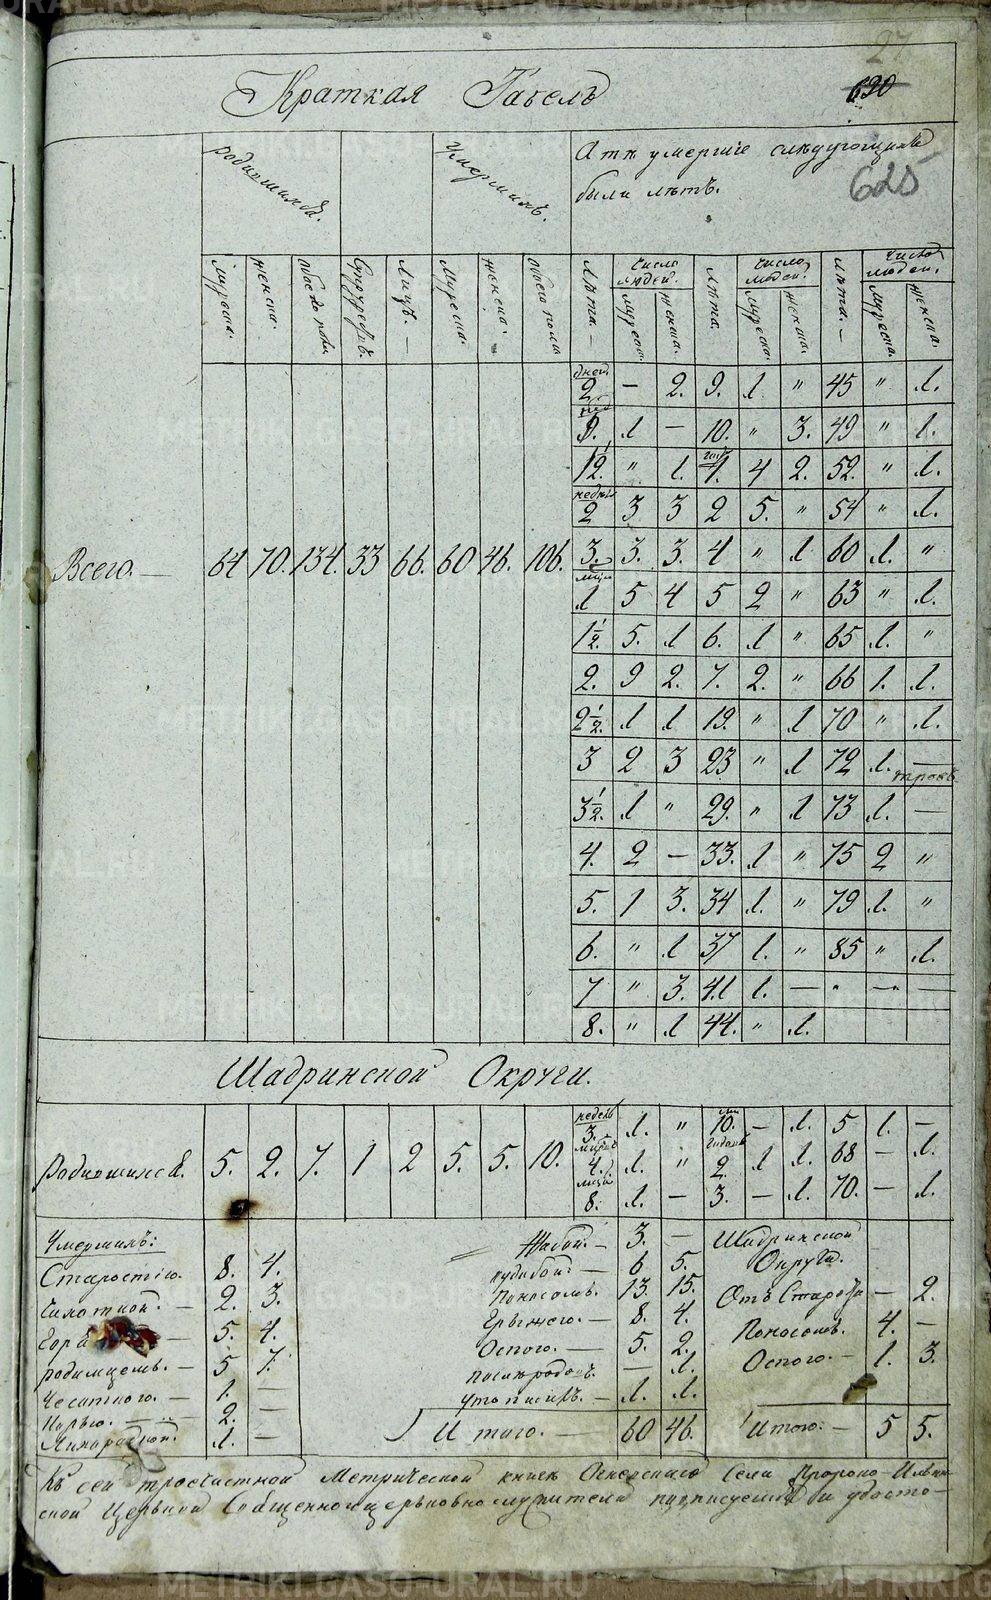 27
620
Краткая Табель
625
родившихся.
Умершихъ.
А тѣ умершіе слѣдующихъ
были лѣтъ.
Мужеска. Женска. Обоего пола. Супружествъ. Лицъ. Мужеска. Женска. Обоего пола Лѣта. Число людей. Мужеска. Женска. Лѣта. Число людей. Мужеска. Женска. Лѣта. Число людей. Мужеска. Женска.
дней
2. — 2. 9. 1 " 45 " 1.
9. 1 — 10. " 3. 49 " 1.
12. " 1. 1. 4 2. 52. " 1.
недѣль
2 3 3 2 5. " 54 " 1.
Всего. — 64 70. 134. 33 66. 60 46. 106. 3. 3. 3. 4 " 1 60 1. "
1 5 4 5 2 " 63 " 1.
1½. 5. 1 6. 1 " 65 1. "
2. 9 2. 7. 2. " 66 1. 1.
2½. 1 1 19. " 1 70 " 1.
3 2 3 23 " 1 72 1. —
3½. 1 " 29. " 1 73 1. —
4. 2 — 33. 1 " 75 2 "
5. 1 3. 34 1. " 79 1. "
6. " 1 37 1. " 85 " 1.
7 " 3. 41 1. — " — —
8. " 1 44. " 1.
Шадринской Округи.
недель
3. 1. " 10. — 1. 5 1. —
Родившихся. 5. 2. 7. 1 2 5. 5. 10. 4. 1. " 2. 1 1. 68 — 1.
8. 1. — 3. — 1. 70. — 1.
Умершихъ:
Старостію. 8. 4.
Чихоткой. — 2. 3.
5. 4.
родимцемъ. — 5 7.
1. —
2. —
Лихорадкой. 1. —
Жабой. — 3. —
6 5.
Поносомъ. 13. 15.
Грыжею. — 8. 4.
Оспою. — 5. 2.
— 1.
1. 1.
Итого. — 60 46.
Шадринской
Округи.
Отъ Старости — 2.
Поносомъ. 4. —
Оспою. — 1. 3.
Итого. — 5 5.
Къ сей троечастной Метрической книгѣ Огневского Села Пророко-Ильин-
ской Церькви Священноцерьковнослужители подписуемся и удосто-